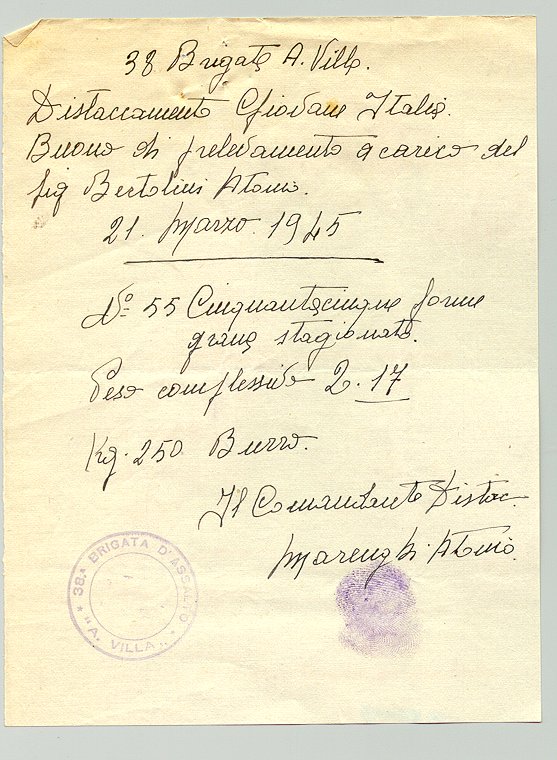 38 Brigata A. Villa.
Distaccamento Giovane Italia.
Buono di prelevamento a carico del
sig Bertolini Atonio.
21. Marzo. 1945
Nº 55 Cinquantacinque forme
grana stagionato.
Peso complessivo 2. 17
Kg. 250 Burro.
Il Comandante Distac.
Marenghi Atonio.
* 38.ª BRIGATA D'ASSALTO *
"A. VILLA"